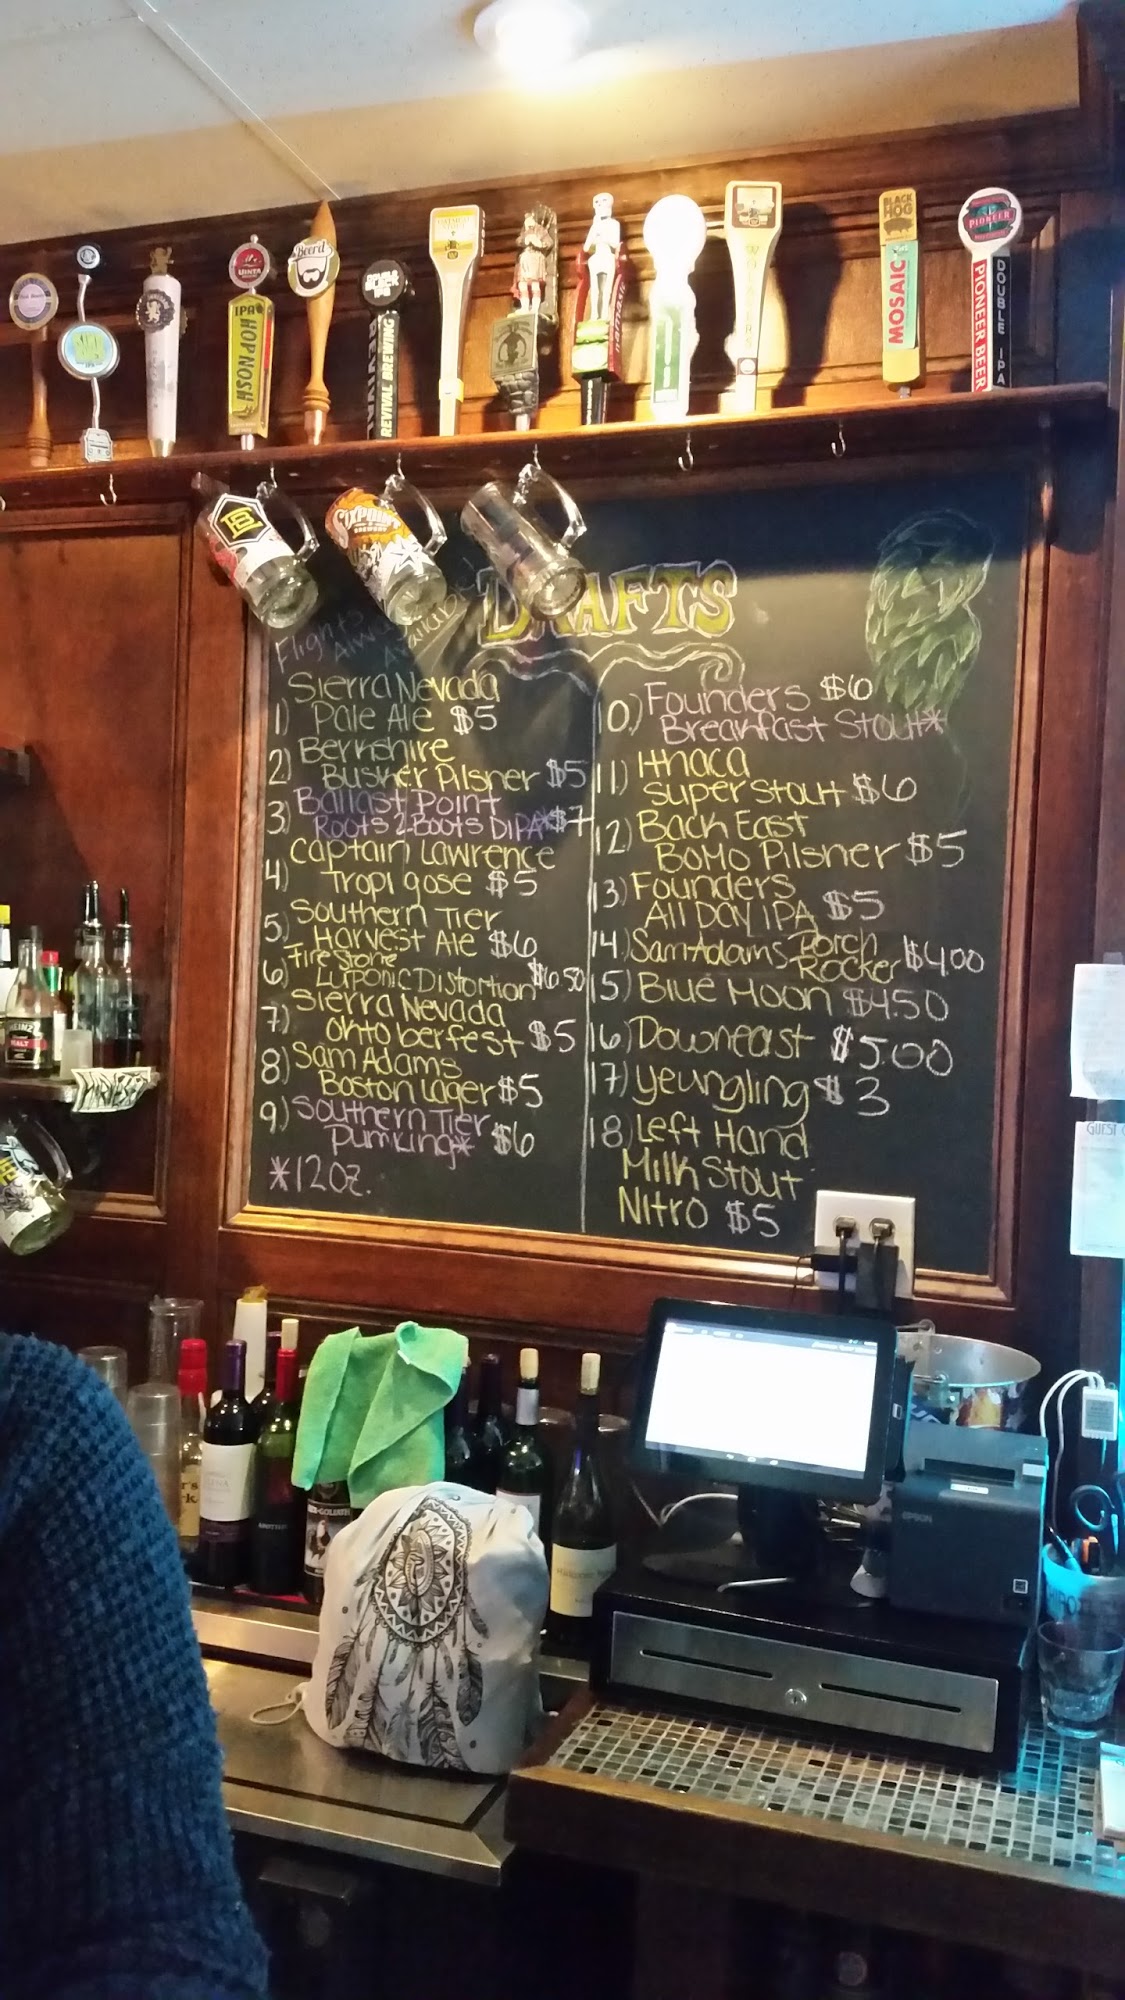 UINTA
IPA
HOP NOSH
Beer'd
DOUBLE BLACK IPA
REVIVAL
REVIVAL BREWING
namaste
BLACK HOG
MOSAIC
PIONEER
PIONEER BEER
DOUBLE IPA
SIXPOINT
BREWERY
DRAFTS
Flights
Always
Available
Sierra Nevada
1) Pale Ale $5
2) Berkshire
Busker Pilsner $5
3) Ballast Point
Roots 2 Boots DIPA*$7
Captain Lawrence
4) Tropi gose $5
5) Southern Tier
Harvest Ale $6
6) Firestone
Luponic Distortion $6.50
7) Sierra Nevada
Ohtoberfest $5
8) Sam Adams
Boston Lager $5
9) Southern Tier
Pumking* $6
*12oz.
10) Founders $6
Breakfast Stout*
11) Ithaca
Super Stout $6
12) Back East
BoMo Pilsner $5
13) Founders
All Day IPA $5
14) Sam Adams Porch
Rocker $4.00
15) Blue Moon $4.50
16) Downeast $5.00
17) Yeungling $3
18) Left Hand
Milk Stout
Nitro $5
HEINZ
MALT
GUEST
EPSON